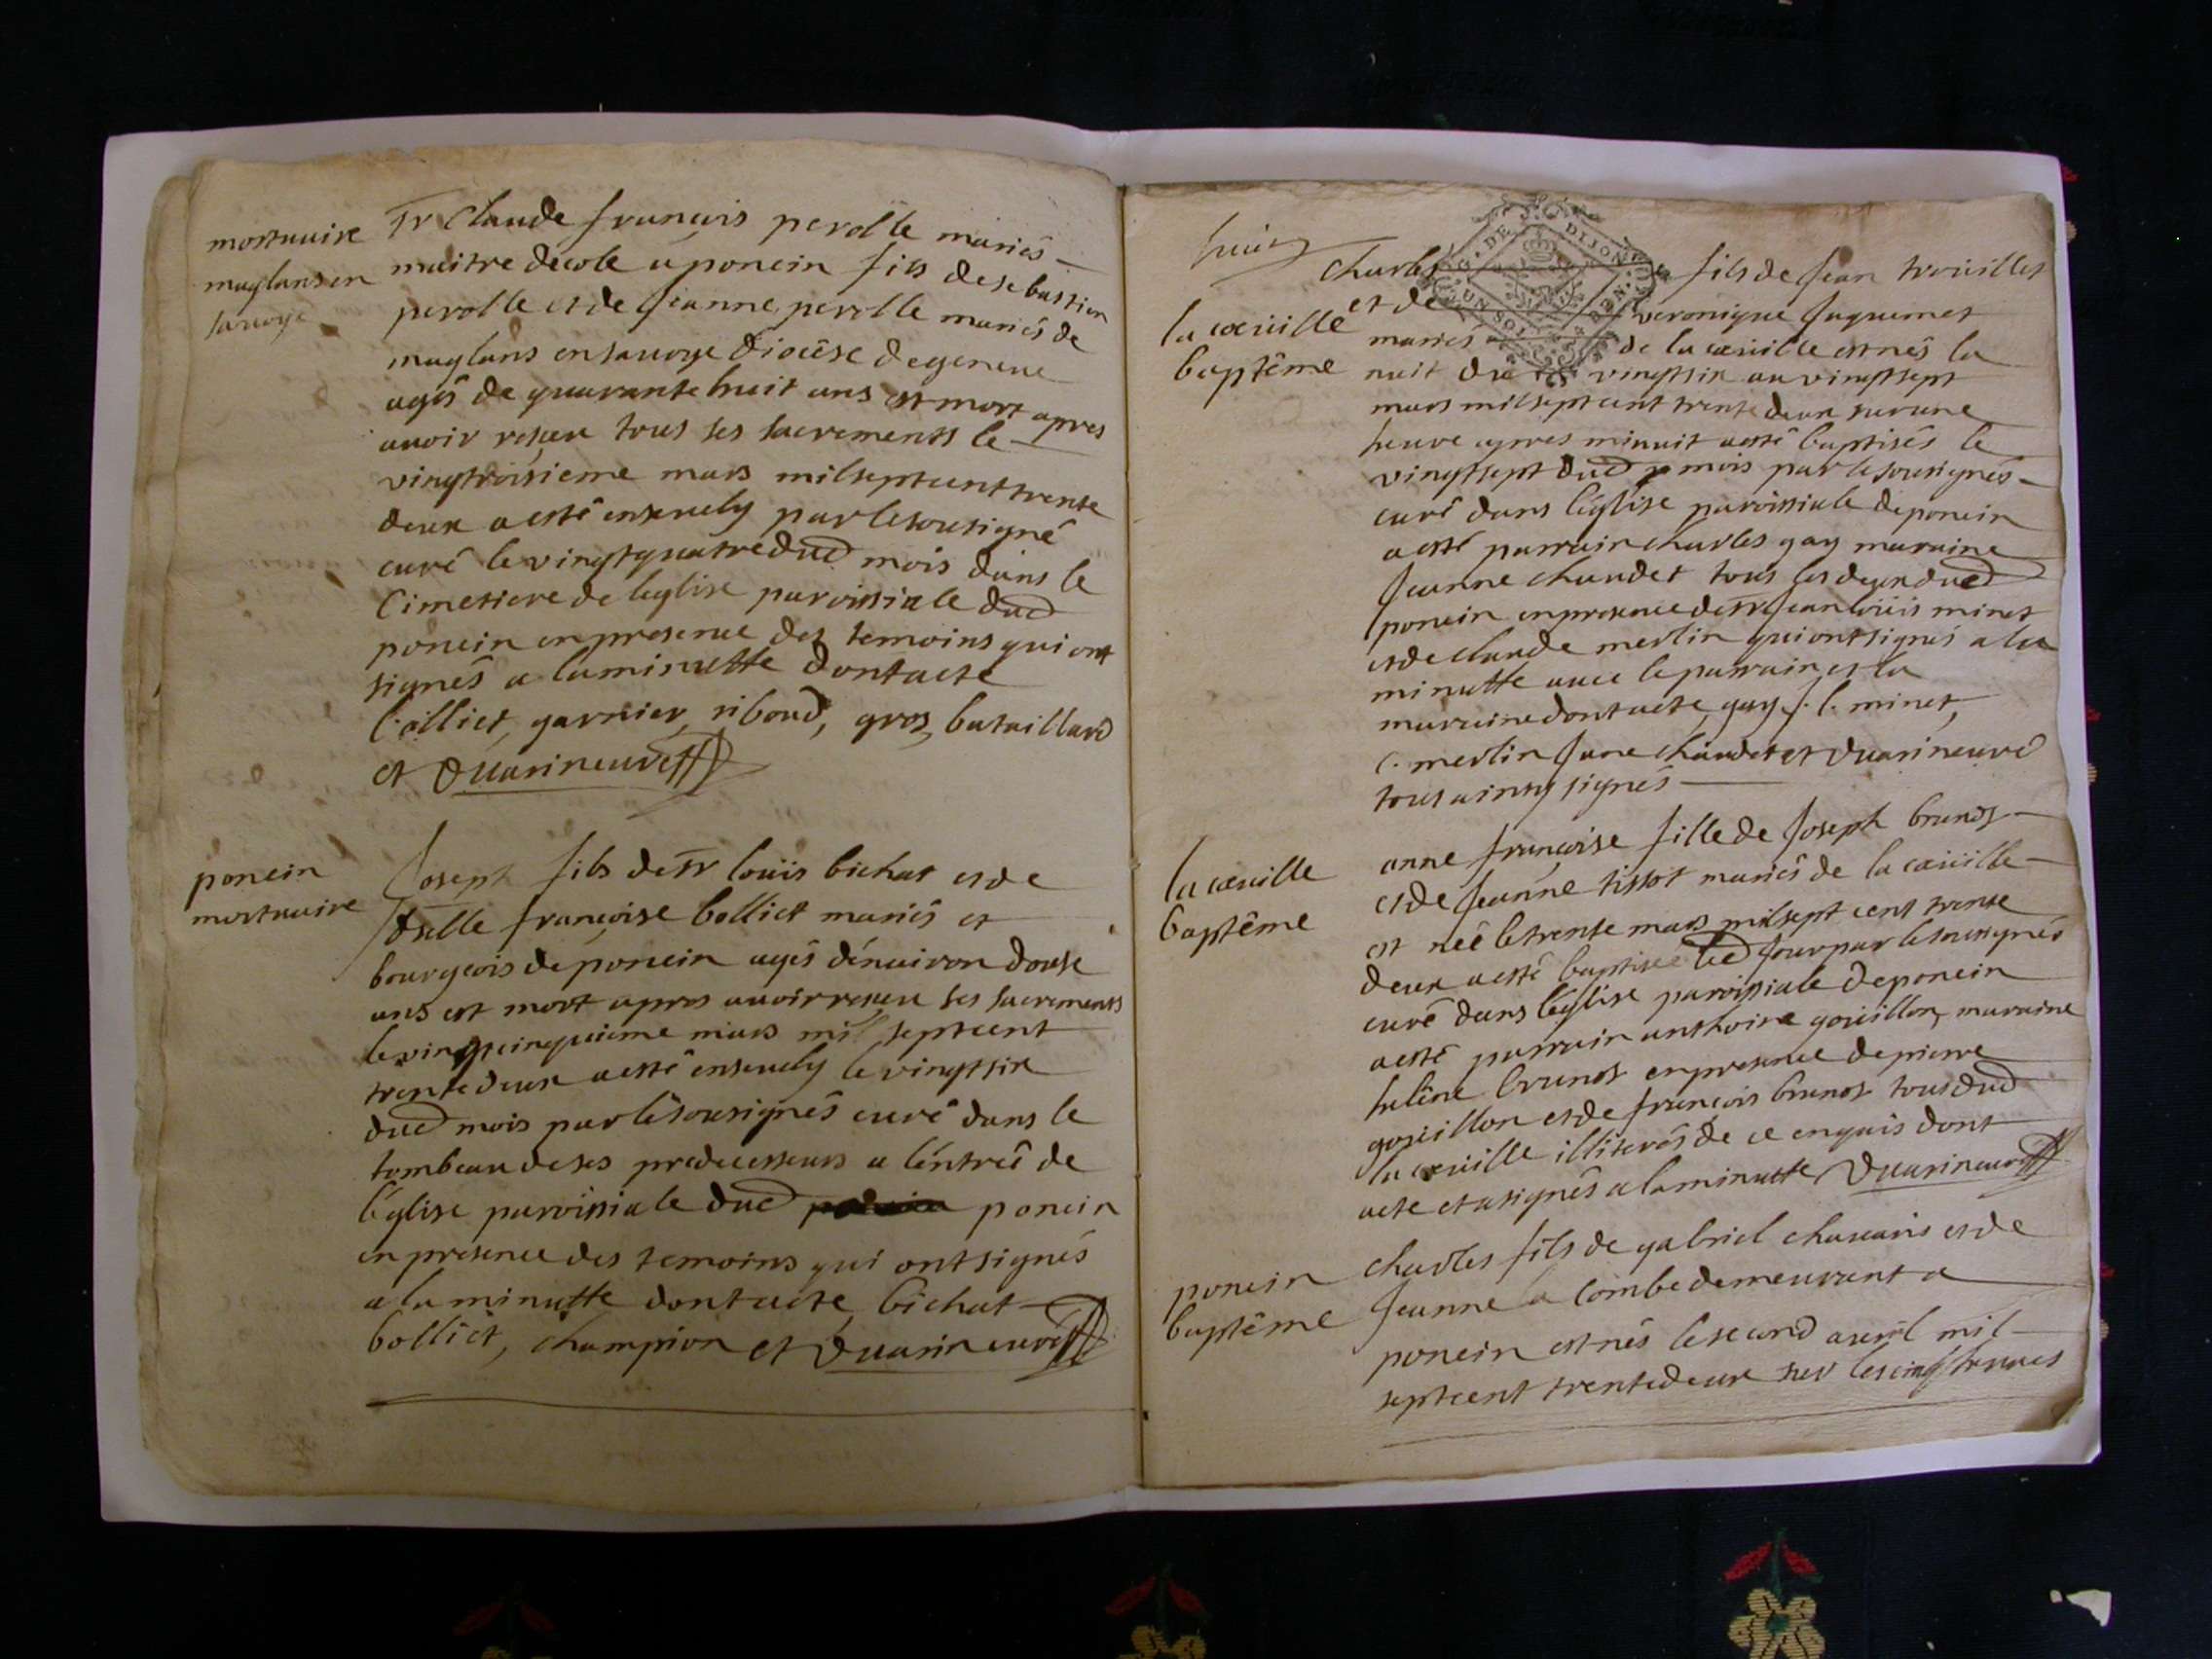 mortuaire
maglans en
savoye
Sr Claude françois perolle mariés
maitre d'ecole a poncin fils de sebastien
perolle et de Jeanne perolle mariés de
maglans en savoye diocêse de geneve
agés de quarante huit ans est mort apres
avoir reseu tous ses sacrements le
vingtroisieme mars mil sept cent trente
deux a esté ensevely par le sousigné
curé le vingt quatre dud mois dans le
Cimetiere de leglise paroissiale dud
poncin en presence des temoins qui ont
signés a la minutte dont acte
Colliet, garnier, riboud, gros, bataillard
et Duarin curé
poncin
mortuaire
Joseph fils de sr louïs bichat et de
dselle françoise bolliet mariés et
bourgeois de poncin agés d'enuiron douse
ans est mort apres auoir reseu ses sacrements
le vingtcinquieme mars mil sept cent
trente deux a esté ensevely le vingt six
dud mois par le sousignés curé dans le
tombeau de ses predecesseurs a l'entreé de
l'église paroissiale dud poncin
en presence des temoins qui ont signés
a la minutte dont acte, bichat
bolliet, champion et Duarin curé
huit
G. DE DIJON
UN SOL 4 DEN.
la coeuille
baptême
Charles fils de Jean trouilles
et de veronique Juquemet
mariés de la coeuille est nés la
nuit du vingt six au vingt sept
mars mil sept cent trente deux sur une
heure apres minuit a esté baptisés le
vingt sept dud mois par le sousignés
curé dans l'église paroissiale de poncin
a esté parrain charles gay maraine
Jeanne chaudet tous les deux dud
poncin en presence de sr Jean loüis minet
et de claude merlin qui ont signés a la
minutte auec le parrain et la
maraine dont acte, gay, J. l. minet,
c. merlin Jane chaudet et Duarin curé
tous ainsy signés
la coeuille
baptême
anne françoise fille de Joseph brunot
et de Jeanne tissot mariés de la coeuille
est neé le trente mars mil sept cent trente
deux a esté baptisee led Jour par le sousignés
curé dans l'église paroissiale de poncin
a esté parrain anthoine goüillon, maraine
helêne brunot en presence de pierre
goüillon et de françois brunot tous dud
la coeuille illiterés de ce enquis dont
acte et a signés a la minutte Duarin curé
poncin
baptême
charles fils de gabriel chavanis et de
Jeanne la Combe demeurant a
poncin est nés le second avril mil
sept cent trente deux sur les cinq heures